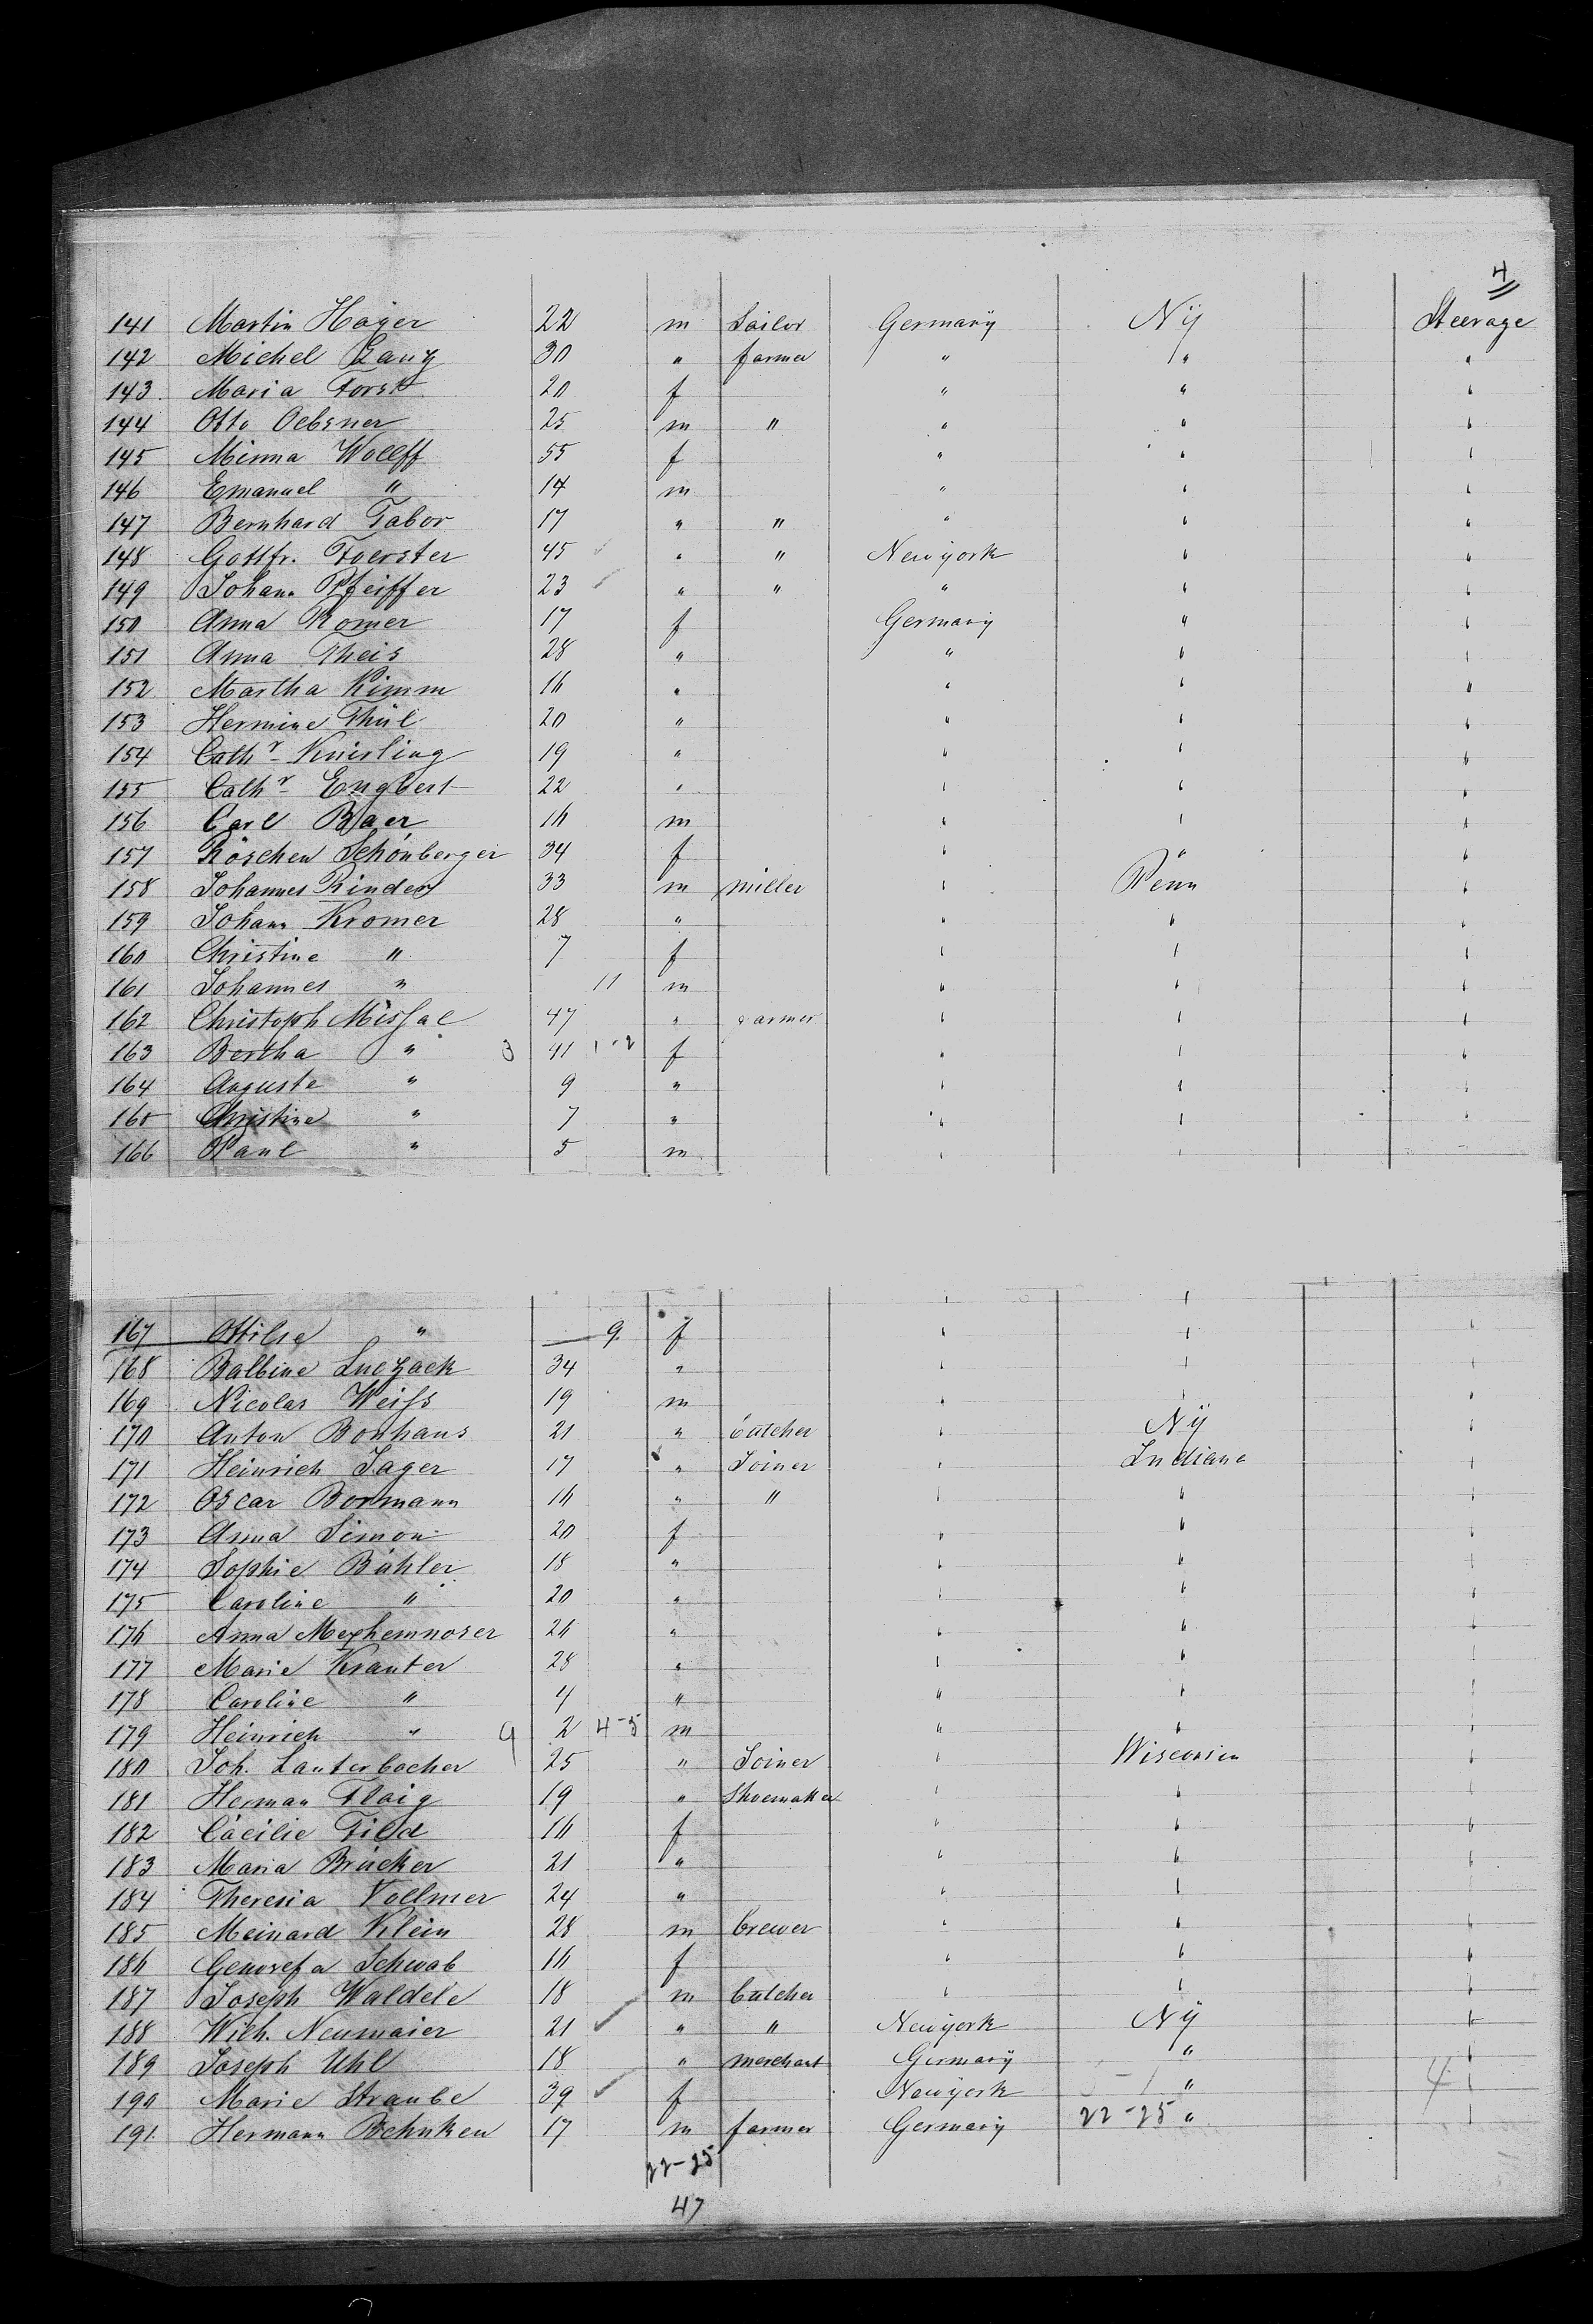 4
141 Martin Hager 22 m Sailor Germany NY Steerage
142 Michel Lang 30 " farmer " " "
143. Maria Forst 20 f " " "
144 Otto Oebsner 25 m " " " "
145 Minna Wolff 55 f " " "
146 Emanuel " 14 m " " "
147 Bernhard Tabor 17 " " " " "
148 Gottfr. Foerster 45 " " Newyork " "
149 Johann Pfeiffer 23 " " " " "
150 Anna Romer 17 f Germany " "
151 Anna Theis 28 " " " "
152 Martha Kimm 16 " " " "
153 Hermine Thül 20 " " " "
154 Cathr Knisling 19 " " " "
155 Cathr Engbert 22 " " " "
156 Carl Baer 16 m " " "
157 Röschen Schönberger 34 f " " "
158 Johannes Rinder 33 m miller " Penn "
159 Johann Kromer 28 " " " "
160 Christine " 7 f " " "
161 Johannes " 11 m " " "
162 Christoph Missal 47 " farmer " " "
163 Bertha " 3 41 1-2 f " " "
164 Auguste " 9 " " " "
165 Christine " 7 " " " "
166 Paul " 5 m " "
167 Ottilie " 9 f " " "
168 Balbine Luczack 34 " " " "
169 Nicolas Weiss 19 m " " "
170 Anton Bonhaus 21 " butcher " NY "
171 Heinrich Jager 17 " Joiner " Indiana "
172 Oscar Bormann 16 " " " " "
173 Anna Simon 20 f " " "
174 Sophie Bähler 18 " " " "
175 Caroline " 20 " " " "
176 Anna 26 " " " "
177 Marie Krauter 28 " " " "
178 Caroline " 4 " " " "
179 Heinrich " 9 2 4-5 m " " "
180 Joh. Lauterbacher 25 " Joiner " Wisconsin "
181 Herman Flaig 19 " Shoemaker " " "
182 Cäcilie Fild 16 f " " "
183 Maria Brücker 21 " " " "
184 Theresia Vollmer 24 " " " "
185 Meinard Klein 28 m brewer " " "
186 Genovefa Schwab 16 f " " "
187 Joseph Waldele 18 m butcher " " "
188 Wilh. Neumaier 21 " " Newyork NY "
189 Joseph Uhl 18 " merchant Germany " "
190 Marie Straube 39 f Newyork " 4 "
191. Hermann Behnken 17 m farmer Germany 22-25 " "
22-25
47